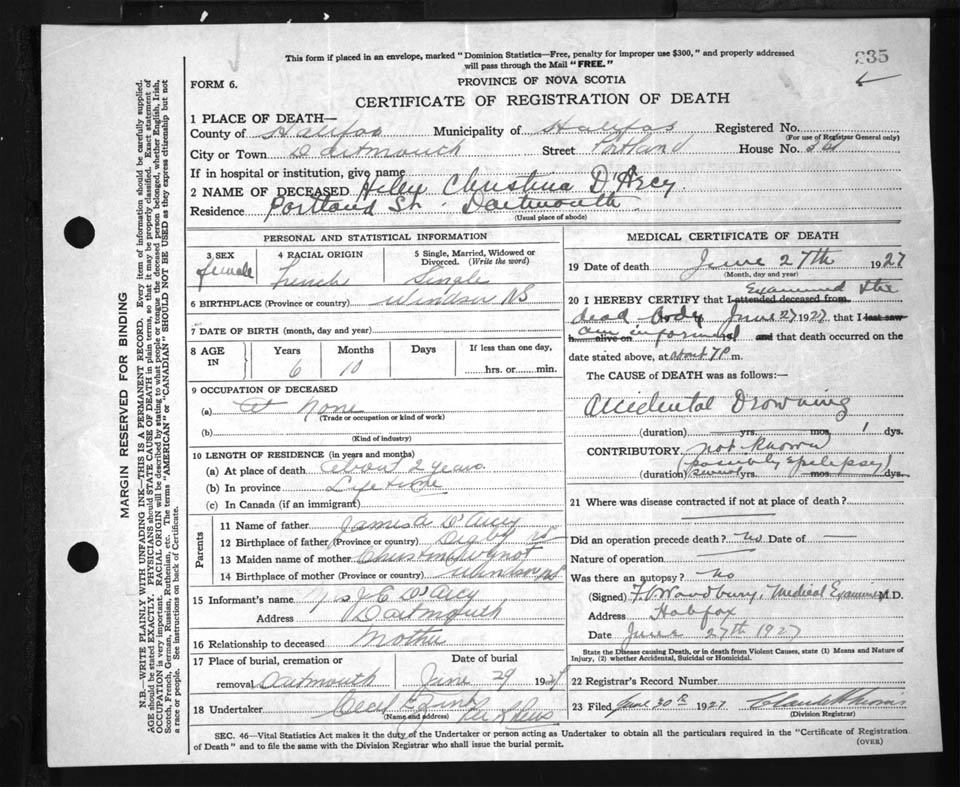 This form if placed in an envelope, marked "Dominion Statistics—Free, penalty for improper use $300," and properly addressed
will pass through the Mail "FREE."
235
FORM 6.
PROVINCE OF NOVA SCOTIA
CERTIFICATE OF REGISTRATION OF DEATH
MARGIN RESERVED FOR BINDING
N.B.—WRITE PLAINLY WITH UNFADING INK—THIS IS A PERMANENT RECORD. Every item of information should be carefully supplied.
AGE should be stated EXACTLY. PHYSICIANS should STATE CAUSE OF DEATH in plain terms, so that it may be properly classified. Exact statement of
OCCUPATION is very important. RACIAL ORIGIN will be described by stating to what people or tongue the deceased person belonged, whether English, Irish,
Scotch, French, German, Russian, Ruthenian, etc. The terms "AMERICAN" or "CANADIAN" SHOULD NOT BE USED as they express citizenship but not
a race or people. See instructions on back of Certificate.
1 PLACE OF DEATH—
County of Halifax Municipality of Halifax Registered No.
(For use of Registrar General only)
City or Town Dartmouth Street Portland House No.
If in hospital or institution, give name
2 NAME OF DECEASED Helen Christina D'Arcy.
Residence Portland St. Dartmouth
(Usual place of abode)
PERSONAL AND STATISTICAL INFORMATION
3 SEX female
4 RACIAL ORIGIN French
5 Single, Married, Widowed or
Divorced. (Write the word)
Single
6 BIRTHPLACE (Province or country) Windsor NS
7 DATE OF BIRTH (month, day and year)
8 AGE IN Years Months Days If less than one day,
6 10 hrs. or min.
9 OCCUPATION OF DECEASED
(a) at None
(Trade or occupation or kind of work)
(b)
(Kind of industry)
10 LENGTH OF RESIDENCE (in years and months)
(a) At place of death about 2 years
(b) In province Life time
(c) In Canada (if an immigrant)
Parents
11 Name of father James D'Arcy
12 Birthplace of father (Province or country) Digby NS
13 Maiden name of mother Christina Wynot
14 Birthplace of mother (Province or country) Windsor NS
15 Informant's name Mrs J C D'Arcy
Address Dartmouth
16 Relationship to deceased Mother
17 Place of burial, cremation or Date of burial
removal Dartmouth June 29 1927
18 Undertaker Cecil
(Name and address)
MEDICAL CERTIFICATE OF DEATH
19 Date of death June 27th 1927
(Month, day and year)
Examined the
20 I HEREBY CERTIFY that I attended deceased from
dead body June 27 1927 that I last saw
am informed
h alive on and that death occurred on the
date stated above, at about 7 P m.
The CAUSE of DEATH was as follows:—
Accidental Drowning
(duration) yrs. mos. 1 dys.
CONTRIBUTORY not known
possibly Epilepsy
(duration) several yrs. mos. dys.
21 Where was disease contracted if not at place of death?
Did an operation precede death? no Date of
Nature of operation
Was there an autopsy? no
(Signed) F. Woodbury, Medical Examiner M.D.
Address Halifax
Date June 27th 1927
State the Disease causing Death, or in death from Violent Causes, state (1) Means and Nature of
Injury, (2) whether Accidental, Suicidal or Homicidal.
22 Registrar's Record Number
23 Filed June 30th 1927
(Division Registrar)
SEC. 46—Vital Statistics Act makes it the duty of the Undertaker or person acting as Undertaker to obtain all the particulars required in the "Certificate of Registration
of Death" and to file the same with the Division Registrar who shall issue the burial permit.
(OVER)